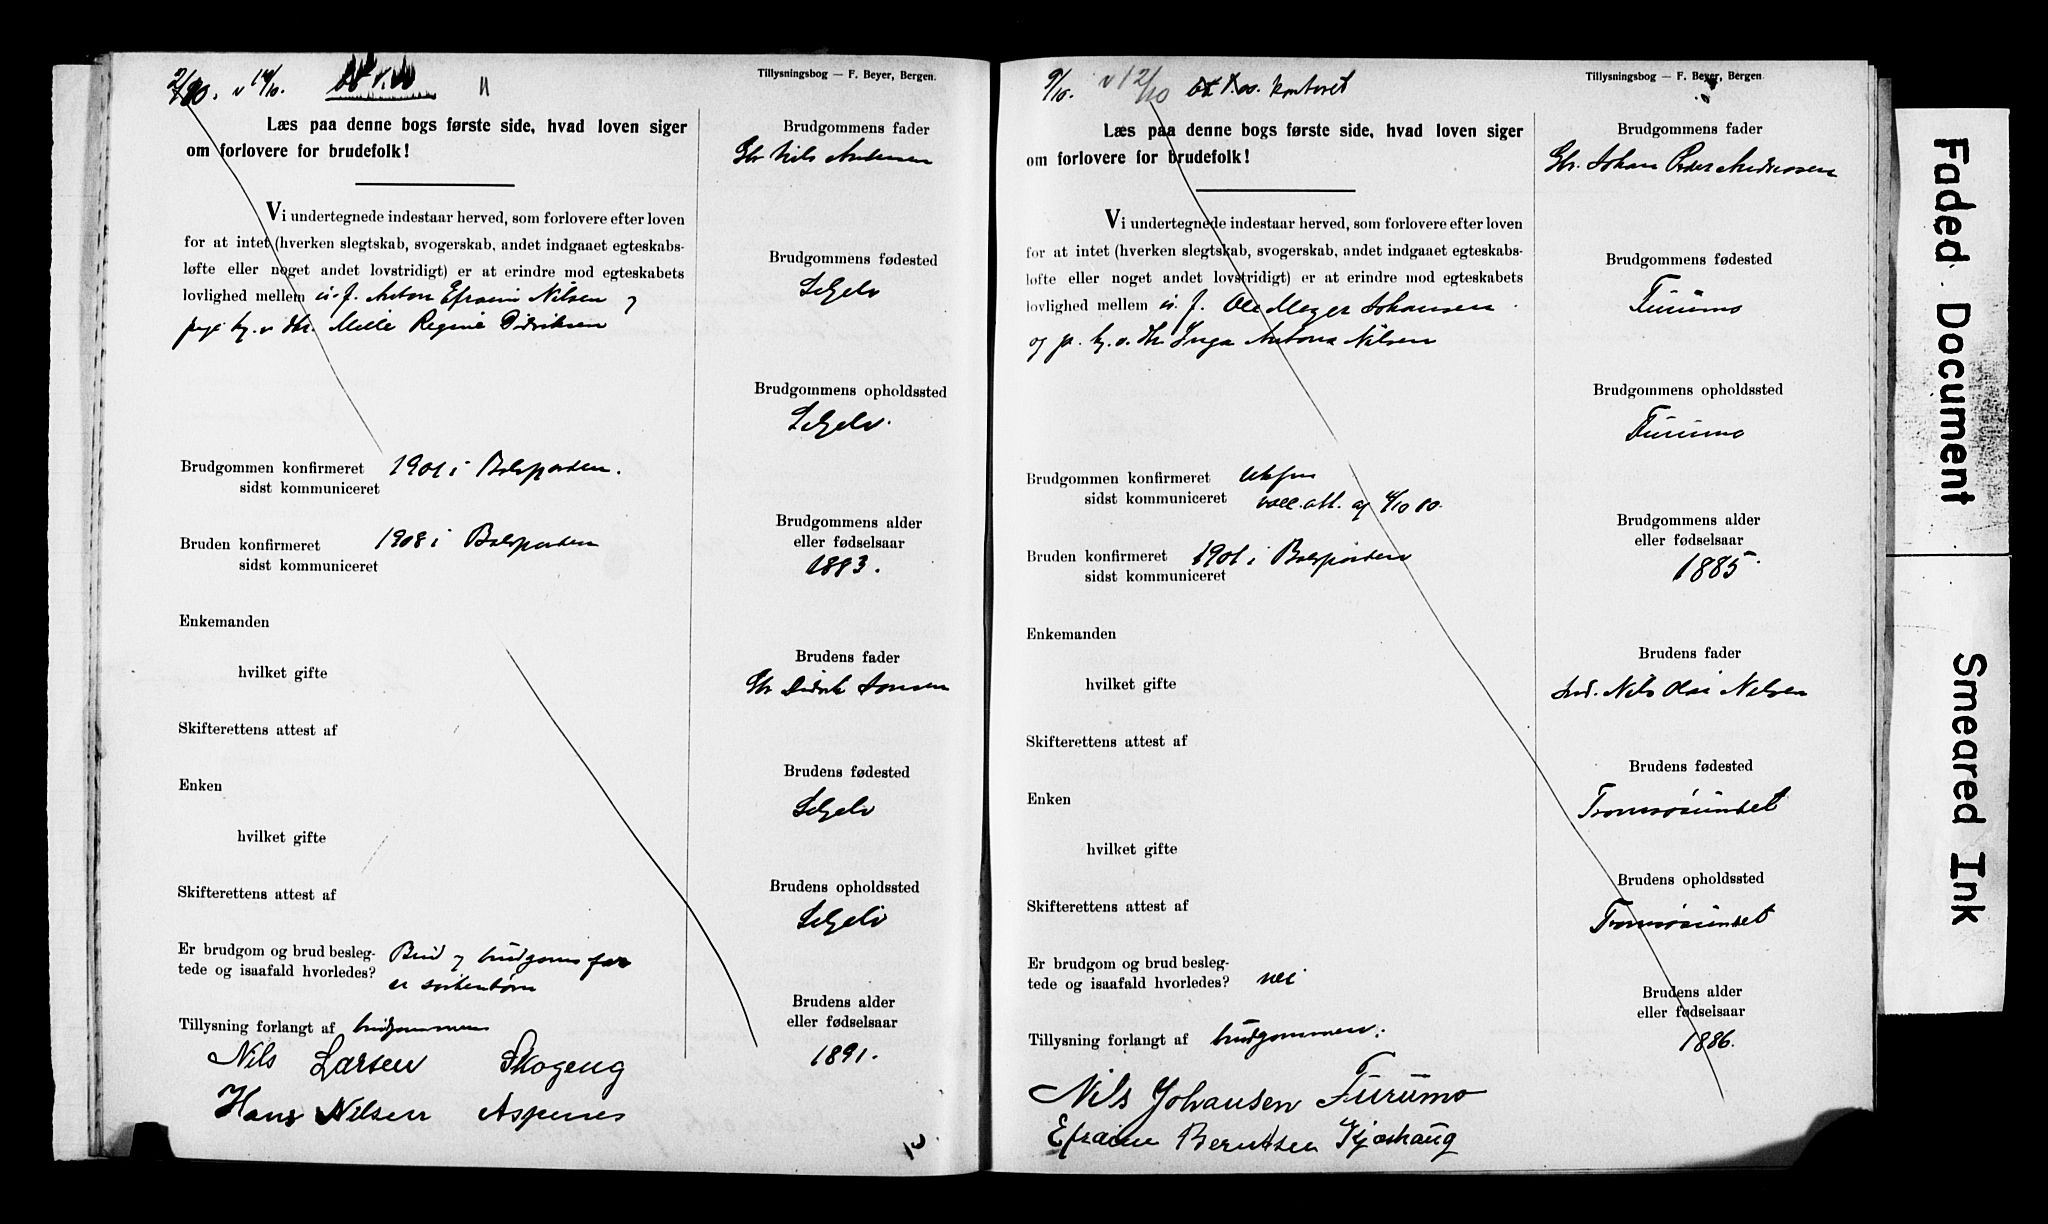 v 14/10.
11
Tillysningsbog — F. Beyer, Bergen.
Læs paa denne bogs første side, hvad loven siger
om forlovere for brudefolk!
Vi undertegnede indestaar herved, som forlovere efter loven
for at intet (hverken slegtskab, svogerskab, andet indgaaet egteskabs-
løfte eller noget andet lovstridigt) er at erindre mod egteskabets
lovlighed mellem Anton Efraim Nilsen og
Regine Didriksen
Brudgommen konfirmeret 1901 i Balsfjorden.
sidst kommuniceret
Bruden konfirmeret 1908 i Balsfjorden
sidst kommuniceret
Enkemanden
hvilket gifte
Skifterettens attest af
Enken
hvilket gifte
Skifterettens attest af
Er brudgom og brud besleg-
tede og isaafald hvorledes? Brud og brudgoms far
er søskenbørn
Tillysning forlangt af brudgommen
Nils Larsen Skogeng
Hans Nilsen Aspenes
Brudgommens fader
Gbr Nils Andersen
Brudgommens fødested
Selgelv
Brudgommens opholdssted
Selgelv.
Brudgommens alder
eller fødselsaar
1883.
Brudens fader
Gbr Didrik Jonsen
Brudens fødested
Selgelv
Brudens opholdssted
Selgelv
Brudens alder
eller fødselsaar
1891.
9/10. v 12/10 kontoret
Tillysningsbog — F. Beyer, Bergen.
Læs paa denne bogs første side, hvad loven siger
om forlovere for brudefolk!
Vi undertegnede indestaar herved, som forlovere efter loven
for at intet (hverken slegtskab, svogerskab, andet indgaaet egteskabs-
løfte eller noget andet lovstridigt) er at erindre mod egteskabets
lovlighed mellem Ole Meyer Johansen
og Inga Antona Nilsen
Brudgommen konfirmeret
sidst kommuniceret
Bruden konfirmeret 1901 i Balsfjorden
sidst kommuniceret
Enkemanden
hvilket gifte
Skifterettens attest af
Enken
hvilket gifte
Skifterettens attest af
Er brudgom og brud besleg-
tede og isaafald hvorledes? nei
Tillysning forlangt af brudgommen.
Nils Johansen Furumo
Efraim Berntsen Kjoshaug
Brudgommens fader
Gbr. Johan Peder Andreassen
Brudgommens fødested
Furumo
Brudgommens opholdssted
Furumo
Brudgommens alder
eller fødselsaar
1885.
Brudens fader
Nils Olai Nilsen
Brudens fødested
Tromsøsundet
Brudens opholdssted
Tromsøsundet
Brudens alder
eller fødselsaar
1886.
Faded Document
Smeared Ink